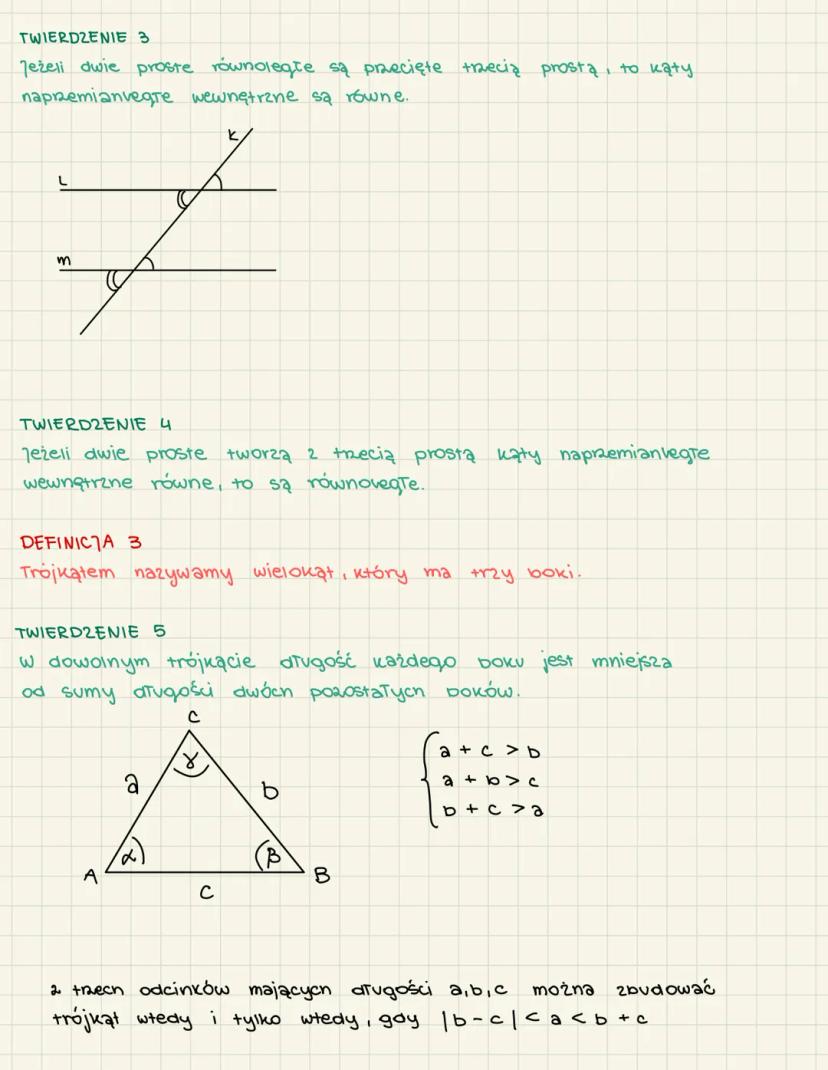 TWIERDZENIE 3
Jeżeli dwie proste równoległe są przecięte trzecią prostą, to kąty
naprzemianległe wewnętrzne są równe.
K
L
m
TWIERDZENIE 4
Jeżeli dwie proste tworzą z trzecią prostą kąty naprzemianległe
wewnętrzne równe, to są równoległe.
DEFINICJA 3
Trójkątem nazywamy wielokąt, który ma trzy boki.
TWIERDZENIE 5
W dowolnym trójkącie długość każdego boku jest mniejsza
od sumy długości dwóch pozostałych boków.
C
γ
a
b
α
β
A
B
c
a + c > b
a + b > c
b + c > a
z trzech odcinków mających długości a,b,c można zbudować
trójkąt wtedy i tylko wtedy, gdy |b-c| < a < b + c